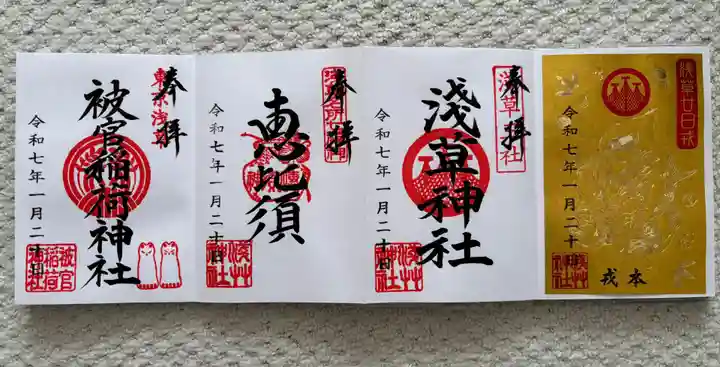 浅草廿日戎
令和七年一月二十日
浅草神社
戎本
奉拝
浅草神社
淺草神社
令和七年一月二十日
浅草神社
奉拝
恵比須
令和七年一月二十日
浅草神社
奉拝
東京浅草
被官稲荷神社
令和七年一月二十日
被官稲荷神社